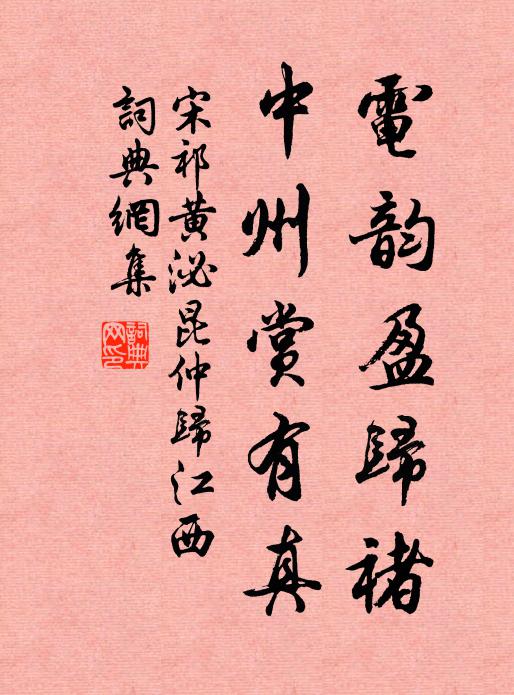 電韵盈歸褚
中州赏有真
宋祁黄泌昆仲歸江西
詞典網集
詞典网印